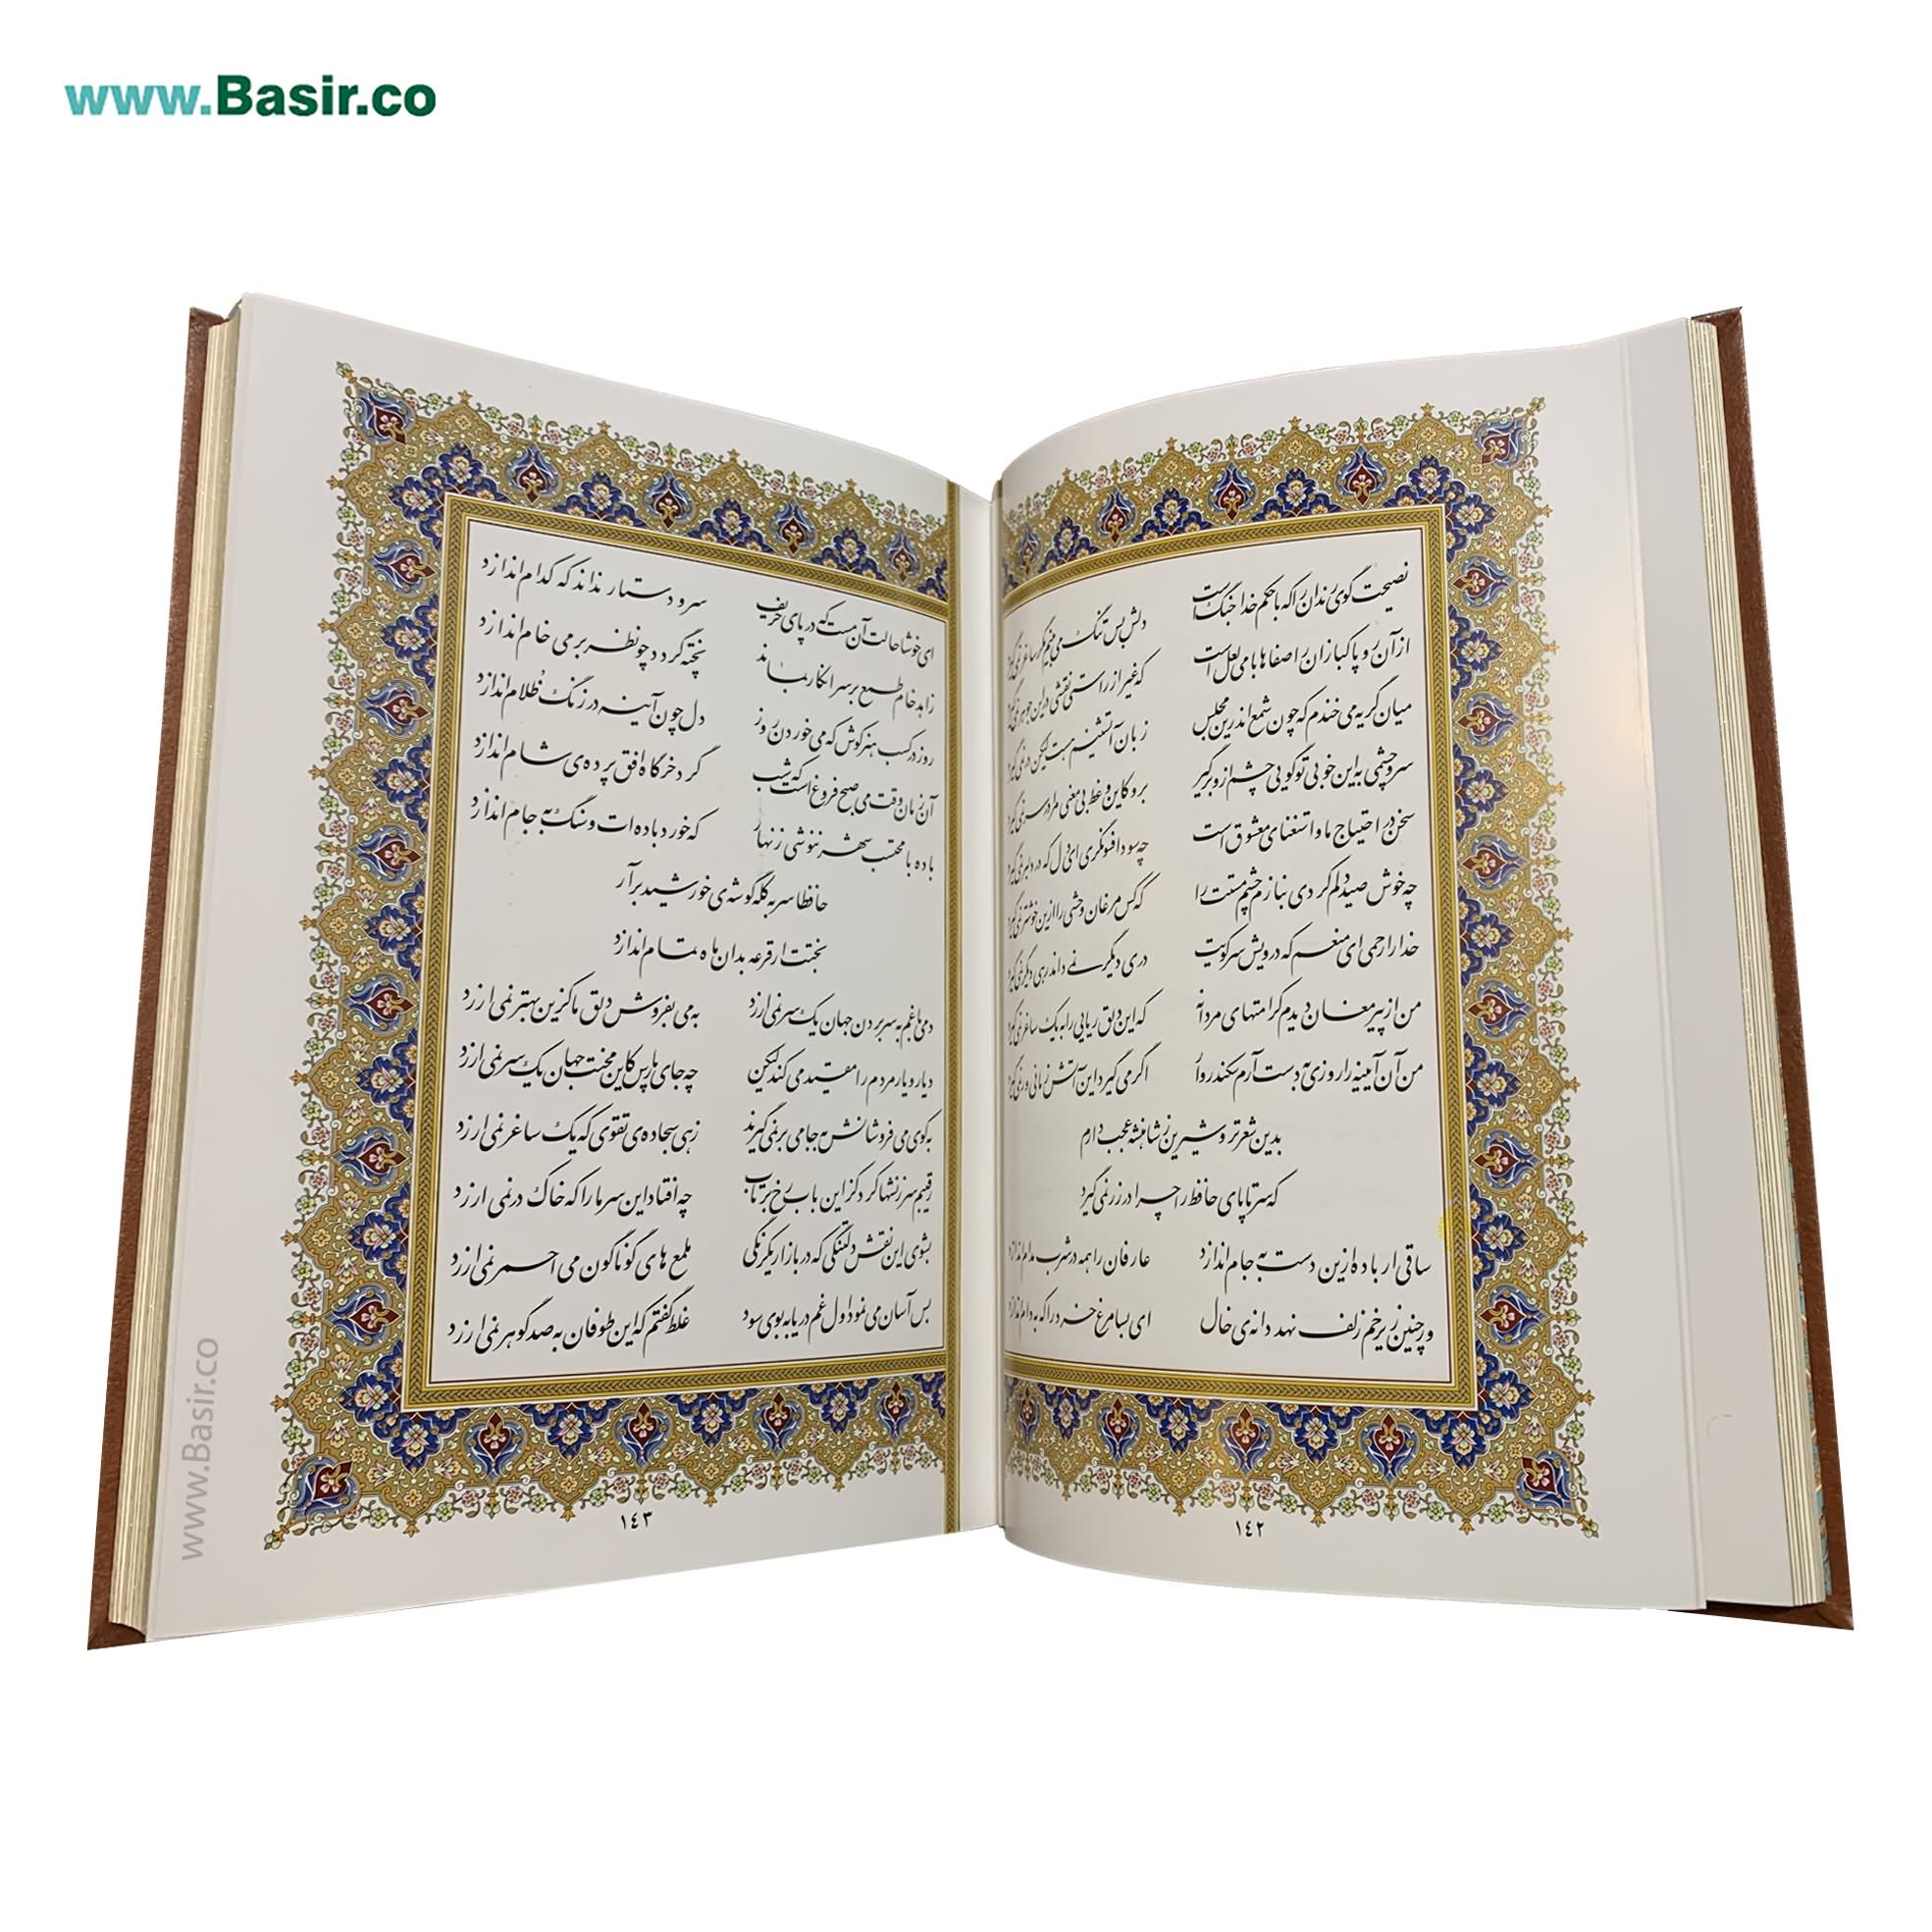 www.Basir.co
نصیحت گوی رندان را که با حکم خدا جنگ است دلش بس تنگ می‌بینم مگر ساغر نمی‌گیرد
از آن رو پاکبازان را صفاها با می لعل است که غیر از راستی نقشی در این جوهر نمی‌گیرد
میان گریه می‌خندم که چون شمع اندرین مجلس زبان آتشینم هست لیکن در نمی‌گیرد
سر و چشمی به این خوبی تو گویی چشم ازو برگیر برو کاین وعظ بی معنی مرا در سر نمی‌گیرد
سخن در احتیاج ما و استغنای معشوق است چه سود افسونگری ای دل که در دلبر نمی‌گیرد
چه خوش صید دلم کردی بنازم چشم مستت را که کس مرغان وحشی را ازین خوشتر نمی‌گیرد
خدا را رحمی ای منعم که درویش سر کویت دری دیگر نمی‌داند رهی دیگر نمی‌گیرد
من از پیر مغان دیدم کرامتهای مردانه که این دلق ریایی را به یک ساغر نمی‌گیرد
من آن آیینه را روزی به دست آرم سکندروار اگر می‌گیرد این آتش زمانی ور نمی‌گیرد
بدین شعر تر و شیرین ز شاهنشه عجب دارم
که سر تا پای حافظ را چرا در زر نمی‌گیرد
ساقی ار باده ازین دست به جام اندازد عارفان را همه در شرب مدام اندازد
ور چنین زیر خم زلف نهد دانه‌ی خال ای بسا مرغ خرد را که به دام اندازد
۱۴۲
ای خوشا حالت آن مست که در پای حریف سر و دستار نداند که کدام اندازد
زاهد خام طمع بر سر انکار بماند پخته گردد چو نظر بر می خام اندازد
روز در کسب هنر کوش که می خوردن روز دل چون آینه در زنگ ظلام اندازد
آن زمان وقت می صبح فروغ است که شب گرد خرگاه افق پرده‌ی شام اندازد
باده با محتسب شهر ننوشی زنهار که خورد باده‌ات و سنگ به جام اندازد
حافظا سر به کله گوشه‌ی خورشید برآر
بختت ار قرعه بدان ماه تمام اندازد
دمی با غم به سر بردن جهان یک سر نمی‌ارزد به می بفروش دلق ما کزین بهتر نمی‌ارزد
دیار و یار مردم را مقید می‌کند لیکن چه جای پارس کاین محنت جهان یک سر نمی‌ارزد
به کوی می فروشانش به جامی بر نمی‌گیرند زهی سجاده‌ی تقوی که یک ساغر نمی‌ارزد
رقیبم سرزنشها کرد کز این باب رخ برتاب چه افتاد این سر ما را که خاک در نمی‌ارزد
بشوی این نقش دلتنگی که در بازار یکرنگی ملمع‌های گوناگون می احمر نمی‌ارزد
بس آسان می‌نمود اول غم دریا به بوی سود غلط گفتم که این طوفان به صد گوهر نمی‌ارزد
۱۴۳
www.Basir.co